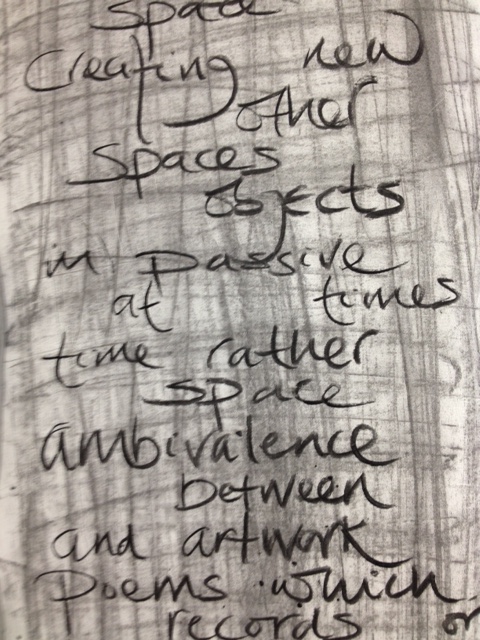 space
Creating new
other
spaces
objects
in passive
at times
time rather
space
ambivalence
between
and artwork
Poems which
records or